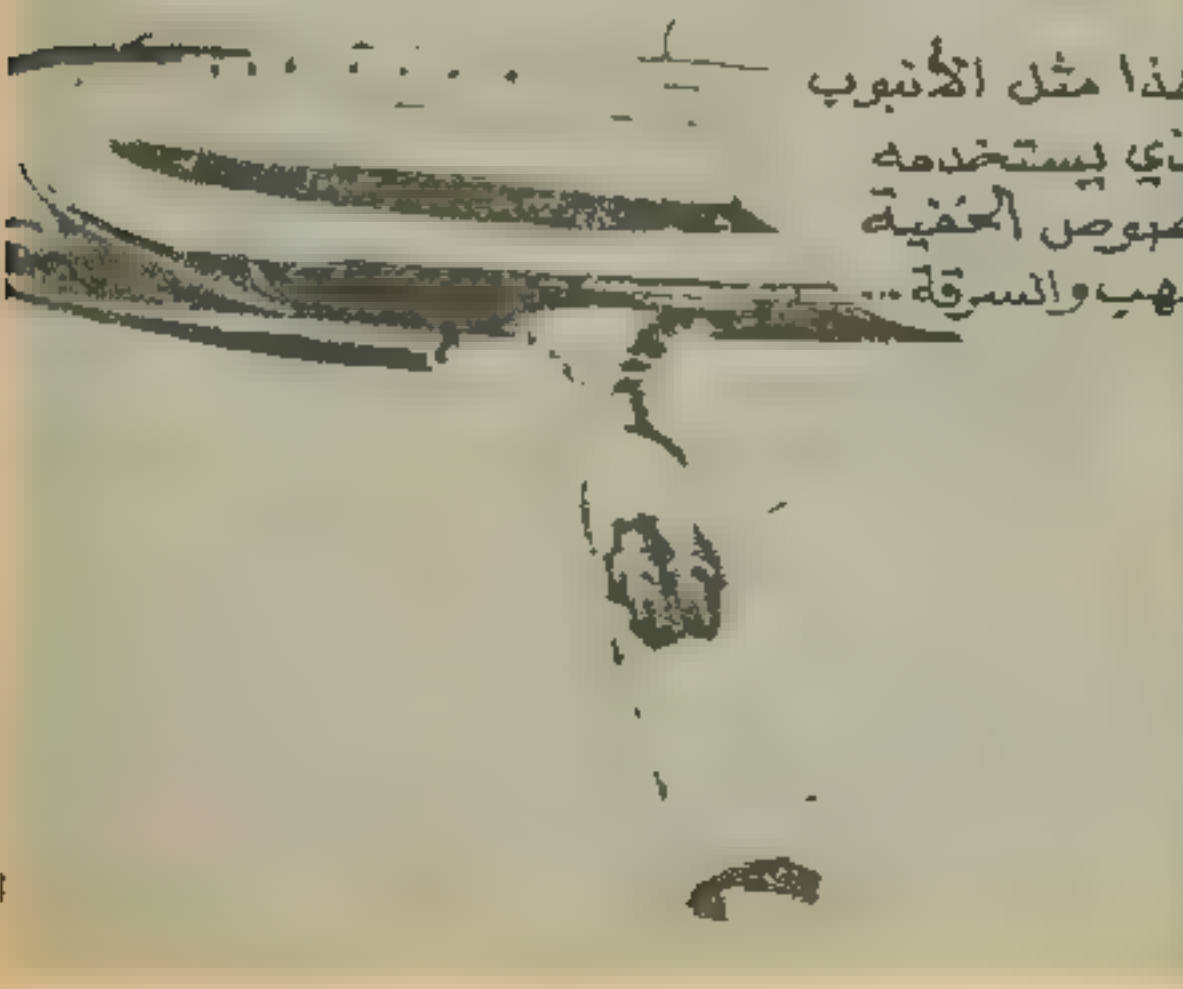 هذا مثل الأنبوب
ذي يستخدمه
صوص الخفية
هب والسرقة...